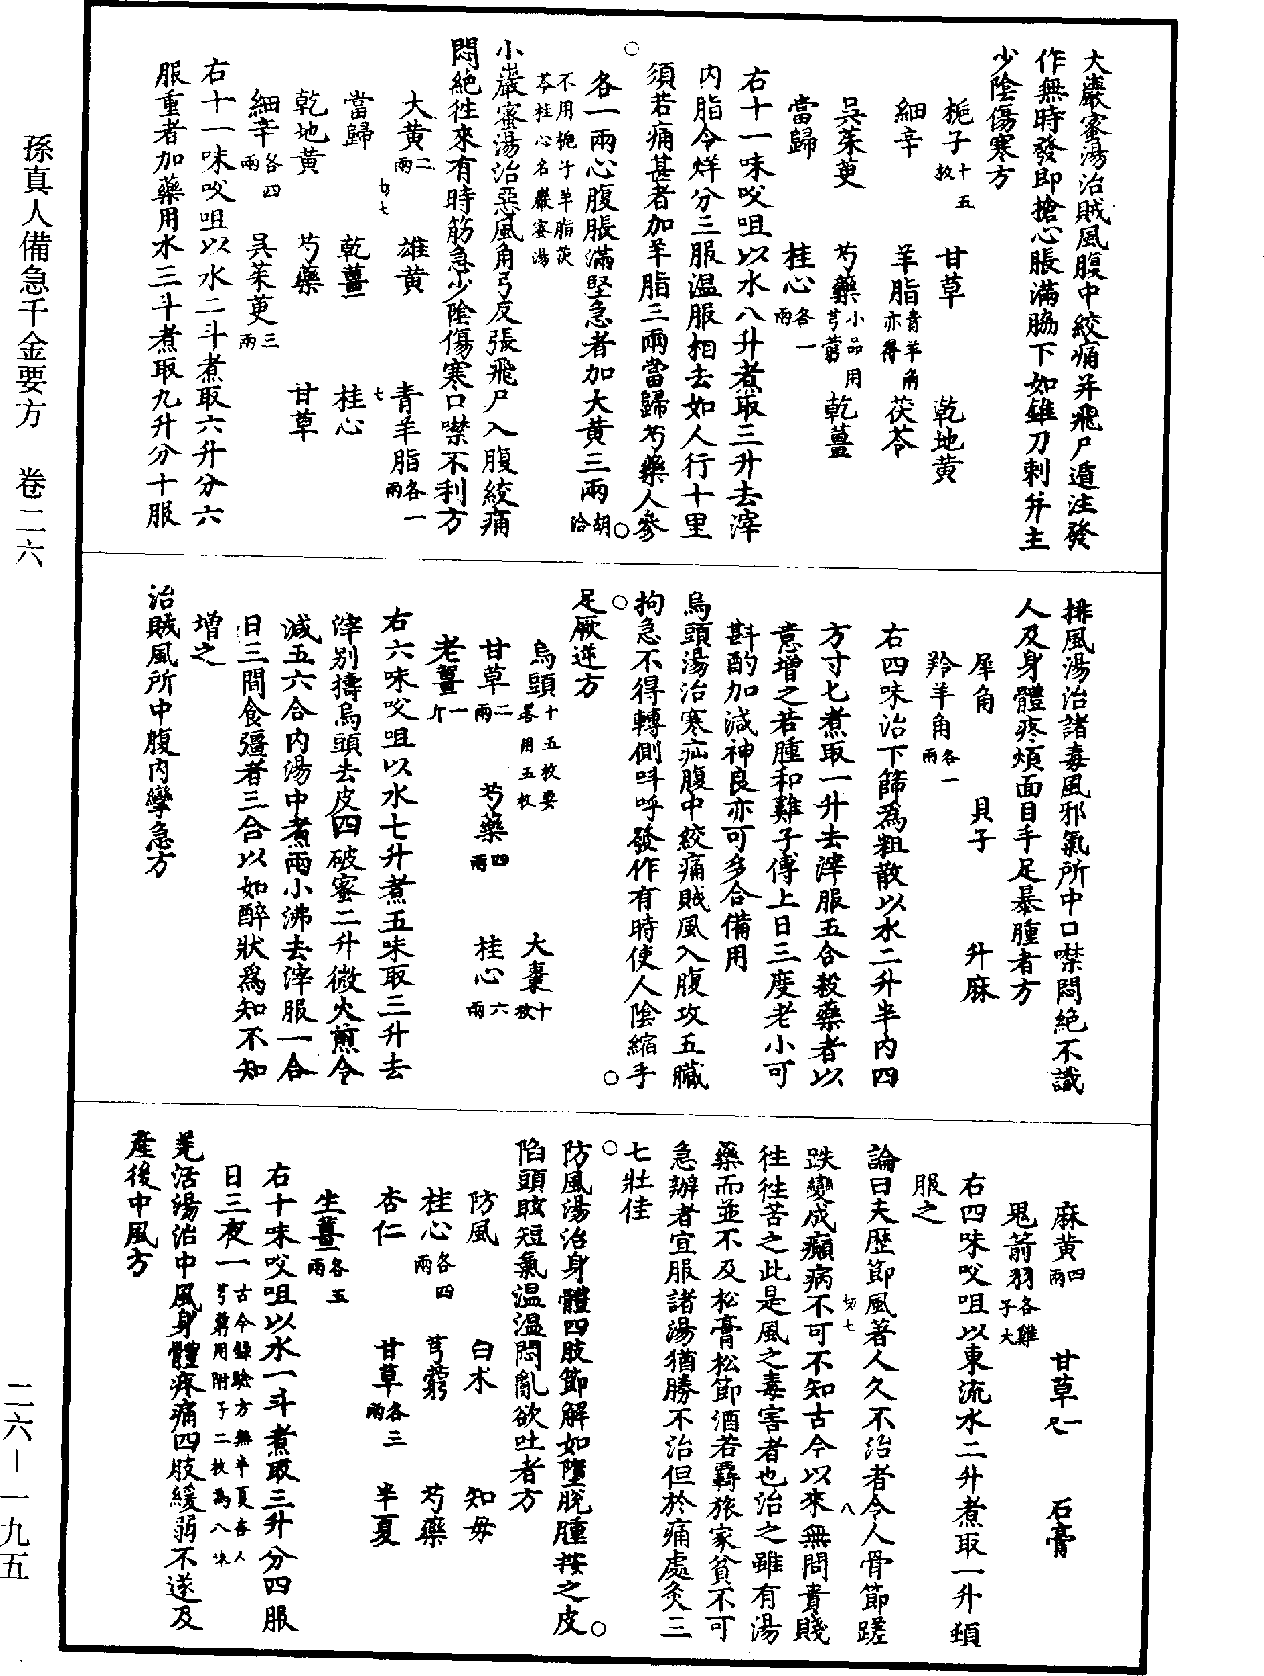 孫真人備急千金要方 卷二六
大巖蜜湯治賊風腹中絞痛并飛尸遁注發
作無時發即搶心脹滿脇下如錐刀刺并主
少陰傷寒方
梔子十五枚 甘草 乾地黃
細辛 羊脂青羊角亦得 茯苓
吳茱萸 芍藥小品用芎藭 乾薑
當歸 桂心各一兩
右十一味㕮咀以水八升煮取三升去滓
内脂令烊分三服溫服相去如人行十里
須若痛甚者加羊脂三兩當歸芍藥人參
各一兩心腹脹滿堅急者加大黃三兩胡洽
不用梔子羊脂茯
苓桂心名巖蜜湯
小巖蜜湯治惡風角弓反張飛尸入腹絞痛
悶絶往來有時筋急少陰傷寒口噤不利方
大黃二兩 雄黃 青羊脂各一兩
切七 七
當歸 乾薑 桂心
乾地黃 芍藥 甘草
細辛各四兩 吳茱萸三兩
右十一味㕮咀以水二斗煮取六升分六
服重者加藥用水三斗煮取九升分十服
排風湯治諸毒風邪氣所中口噤悶絶不識
人及身體疼煩面目手足暴腫者方
犀角 貝子 升麻
羚羊角各一兩
右四味治下篩爲粗散以水二升半内四
方寸匕煮取一升去滓服五合殺藥者以
意增之若腫和雞子傅上日三度老小可
斟酌加減神良亦可多合備用
烏頭湯治寒疝腹中絞痛賊風入腹攻五臟
拘急不得轉側叫呼發作有時使人陰縮手
足厥逆方
烏頭十五枚要畧用五枚 大棗十枚
甘草二兩 芍藥四兩 桂心六兩
老薑一斤
右六味㕮咀以水七升煮五味取三升去
滓别擣烏頭去皮四破蜜二升微火煎令
減五六合内湯中煮兩小沸去滓服一合
日三間食彊者三合以如醉狀爲知不知
增之
治賊風所中腹内攣急方
麻黃四兩 甘草一尺 石膏
鬼箭羽各雞子大
右四味㕮咀以東流水二升煮取一升頓
服之
論曰夫歴節風著人久不治者令人骨節蹉
切七 八
跌變成癲病不可不知古今以來無問貴賤
往往苦之此是風之毒害者也治之雖有湯
藥而並不及松膏松節酒若羇旅家貧不可
急辦者宜服諸湯猶勝不治但於痛處灸三
七壯佳
防風湯治身體四肢節解如墮脫腫按之皮
陷頭眩短氣溫溫悶亂欲吐者方
防風 白术 知母
桂心各四兩 芎藭 芍藥
杏仁 甘草各三兩 半夏
生薑各五兩
右十味㕮咀以水一斗煮取三升分四服
日三夜一古今錄驗方無半夏杏人
芎藭用附子二枚爲八味
羌活湯治中風身體疼痛四肢緩弱不遂及
產後中風方
二六－一九五